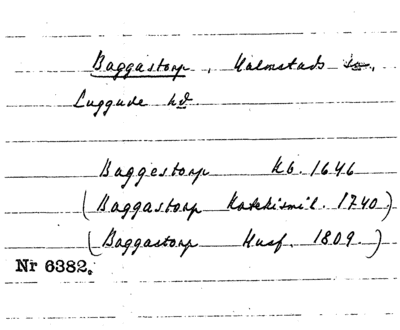 Baggastorp, Halmstads sn,
Luggude hd
Baggestorp Kb. 1646
(Baggastorp Katekismil. 1740)
(Baggastorp Husf. 1809.)
Nr 6382.